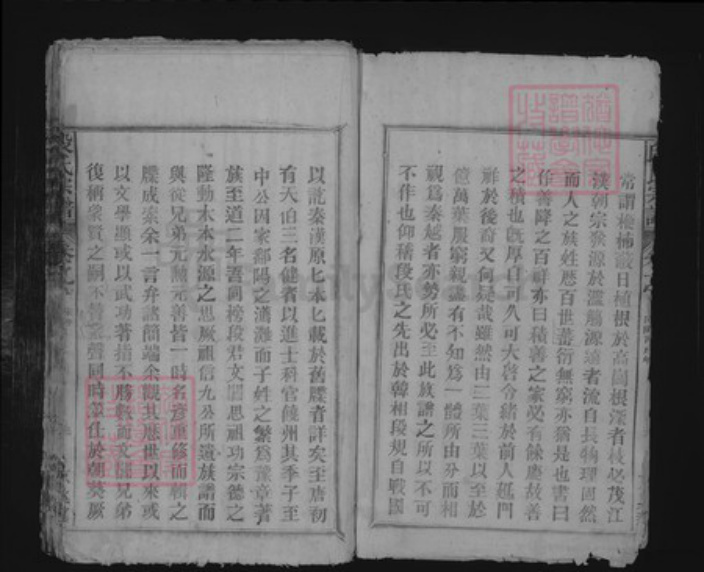 常謂梗楠蔽日植根於高岡根深者枝必茂江
漢朝宗發源於濫觴源遠者流自長物理固然
而人之族姓歷百世蕃衍無窮亦猶是也書曰
作善降之百祥亦曰積善之家必有餘慶故善
之積也既厚自可久可大啓令緒於前人延門
祚於後裔又何疑哉雖然由二葉三葉以至於
億萬葉服窮親盡有不知爲一體所由分而相
視爲秦越者亦勢所必至此族譜之所以不可
不作也仰稽段氏之先出於韓相段規自戰國
以訖秦漢原原本本載於舊牒者詳矣至唐初
有大伯三名健者以進士科官饒州其季子至
中公因家鄱陽之灣灘而子姓之繁爲豫章著
族至道二年吾同榜段君文 思祖功宗德之
隆動木本水源之思厥祖信九公所遺族譜而
與從兄弟元勲元善皆一時名彥重修而輯之
牒成索余一言弁諸簡端余觀其歷世以來或
以文學顯或以武功著指不勝數而文 兄弟
復稱衆賢之嗣不 之聲同時 仕於朝 厥
段氏宗譜
FamilySearch